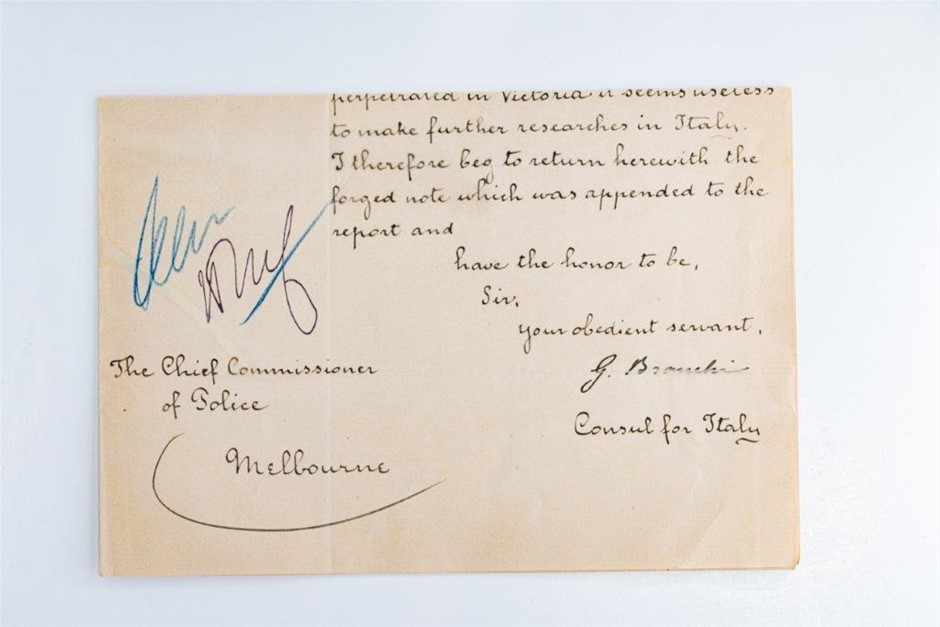 perpetrated in Victoria it seems useless
to make further researches in Italy.
I therefore beg to return herewith the
forged note which was appended to the
report and
have the honor to be,
Sir,
your obedient servant,
G. Branchi
Consul for Italy
The Chief Commissioner
of Police
Melbourne